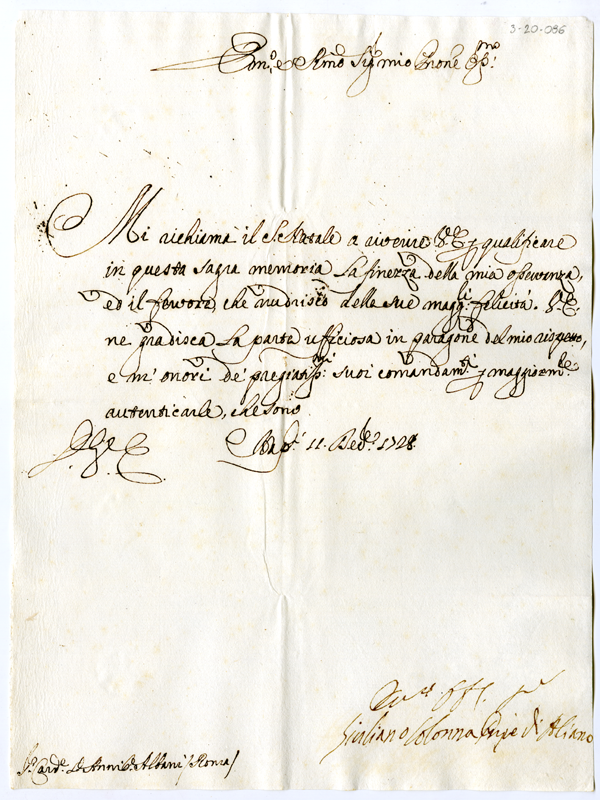 3-20-096
Em.o e Rmo Sig.r mio Prone Oss.mo
Mi richiama il S. Natale a riverire V. E. p qualificare
in questa sagra memoria la finezza della mia osservanza,
ed il fervore, che nudrisco delle sue magg.ri felicità. V. E.
ne gradisca la parte ufficiosa in paragone del mio rispetto,
e m'onori de' pregiatiss.mi suoi comandam.ti p maggiorm.te
autenticarle, che sono
D. V. E.
Nap.i 11. Xbre 1728
Giuliano Colonna Prnpe di Aliano
S.r Card.e D. Annib.e Albani / Roma /